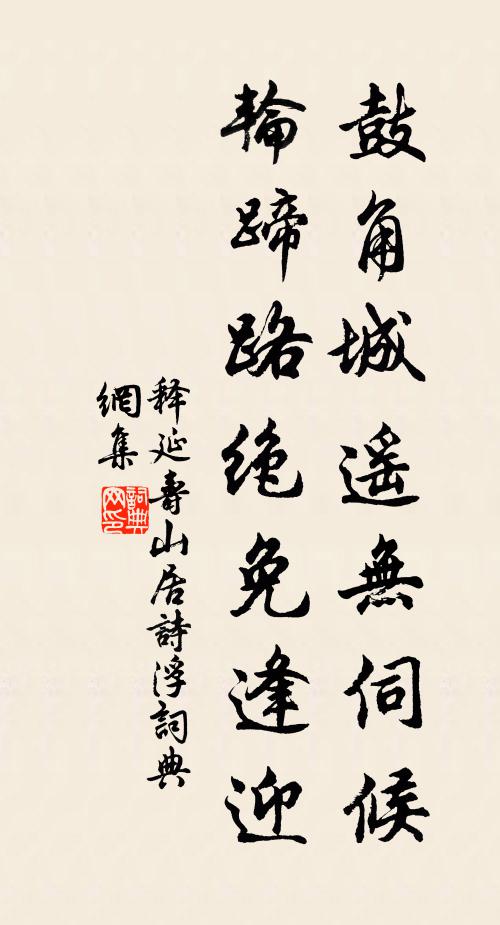 鼓角城遥無伺候
輪蹄路绝免逢迎
释延壽山居詩浮詞典
網集
詞典
网印